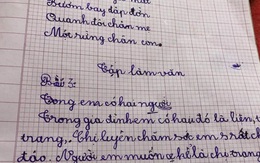 Bướm bay dập dờn
Quanh đôi chân mẹ
Một rừng chân con.
Tập làm văn
Bài 2
Trong em có hai người
Trong gia đình em có hau đó là liên, t
trang, Chị luyên chăm sơt em s rất ch
đáo. Người em muốn kể là chị trang